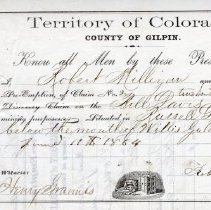 Territory of Colora
COUNTY OF GILPIN.
Know all Men by these Pre
I, Robert Milligan
Pre-Emption, of Claim No. 3
Discovery Claim on the Bill Davis
mining purposes. Situated in Russell
below the mouth of Willis Gul
June 11th 1864
Witness:
Henry